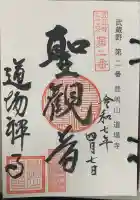 武蔵野 第二番 豊島山 道場寺
第二番
聖観音
道場禅寺
令和七年
四月七日